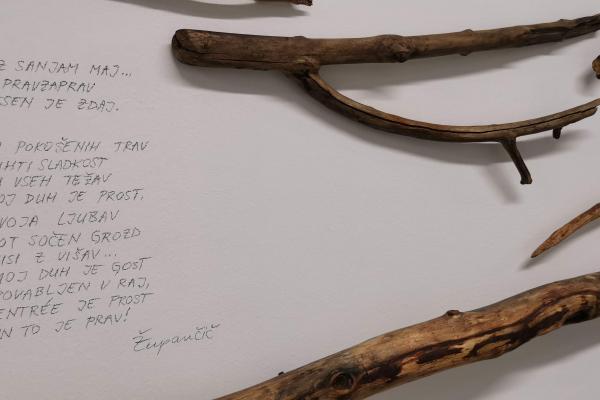 SANJAM MAJ...
PRAVZAPRAV
JE ZDAJ.
POKOŠENIH TRAV
SLADKOST
VSEH TEŽAV
DUH JE PROST.
LJUBAV
SOČEN GROZD
Z VIŠAV...
MOJ DUH JE GOST
POVABLJEN V RAJ,
ENTRÉE JE PROST
IN TO JE PRAV!
Župančič